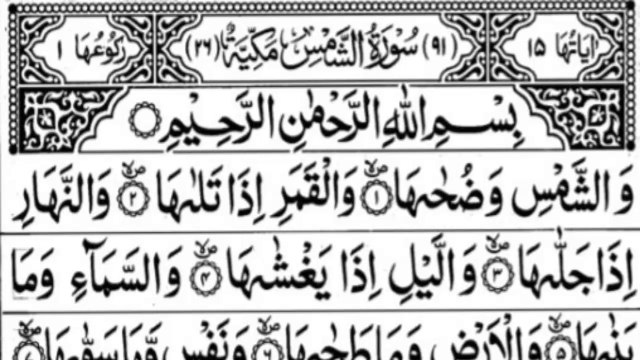 اٰیَاتُهَا ۱۵ (۹۱) سُوْرَةُ الشَّمْسِ مَكِّیَّةٌ (۲۶) رُكُوْعُهَا ۱
بِسْمِ اللّٰهِ الرَّحْمٰنِ الرَّحِیْمِ
وَالشَّمْسِ وَضُحٰىهَا ۱ وَالْقَمَرِ اِذَا تَلٰىهَا ۲ وَالنَّهَارِ
اِذَا جَلّٰىهَا ۳ وَالَّیْلِ اِذَا یَغْشٰىهَا ۴ وَالسَّمَآءِ وَمَا
بَنٰىهَا وَالْاَرْضِ وَمَا طَحٰىهَا ۶ وَنَفْسٍ وَّمَا سَوّٰىهَا